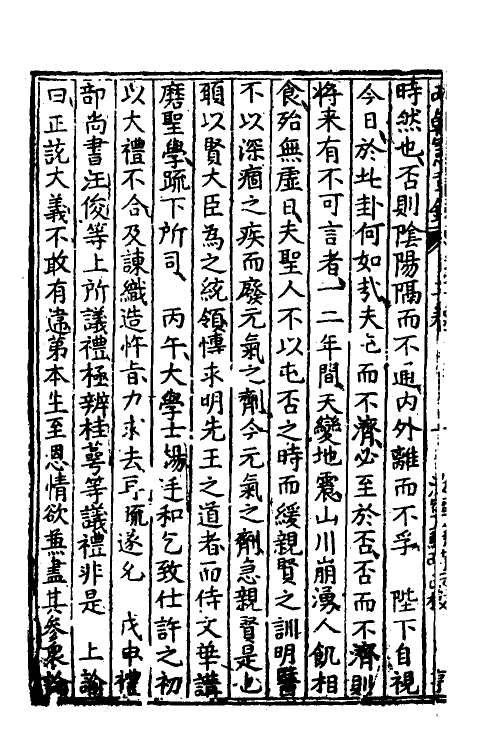 時然也否則陰陽隔而不通內外離而不孚　陛下自視
今日於此卦何如哉夫屯而不濟必至於否否而不濟則
將来有不可言者一二年間天變地震山川崩湧人飢相
食殆無虛日夫聖人不以屯否之時而緩親賢之訓明醫
不以深痼之疾而廢元氣之劑今元氣之劑急親賢是也
願以賢大臣為之統領慱求明先王之道者而侍文華講
磨聖學䟽下所司　丙午大學士楊廷和乞致仕許之初
以大禮不合及諫織造忤㫖力求去䟽遂允　戊申禮
部尚書汪俊等上所議禮極辨桂萼等議禮非是　上諭
曰正䛇大義不敢有違第本生至恩情欲𠔥盡其參衆論